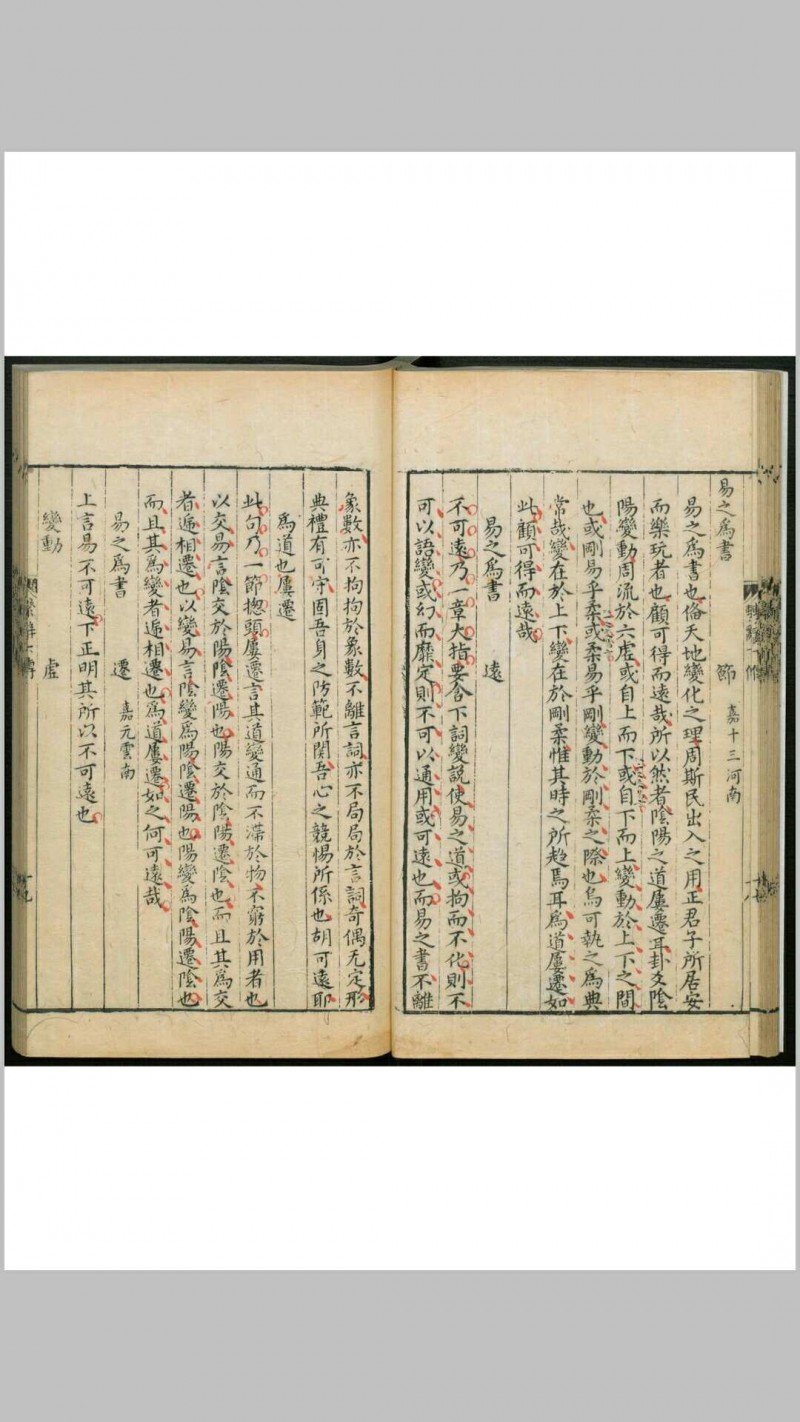 易之爲書　節　嘉十三河南
易之爲書也俻天地變化之理周斯民出入之用正君子所居安
而樂玩者也顧可得而遠哉所以然者陰陽之道屢遷耳卦爻陰
陽變動周流於六虛或自上而下或自下而上變動於上下之間
也或剛易乎柔或柔易乎剛變動於剛柔之際也烏可執之爲典
常哉變在於上下變在於剛柔惟其時之所趍焉耳爲道屢遷如
此顧可得而遠哉
易之爲書　遠
不可遠乃一章大指要含下詞變說使易之道或拘而不化則不
可以語變或幻而靡定則不可以通用或可遠也而易之書不離
象數亦不拘拘於象數不離言詞亦不局局於言詞竒偶无定形
典禮有可守固吾身之防範所関吾心之兢惕所係也胡可遠耶
爲道也屢遷
此句乃一節揔頭屢遷言其道變通而不滯於物不窮於用者也
以交易言陰交於陽陰遷陽也陽交於陰陽遷陰也而且其爲交
者遞相遷也以變易言陰變爲陽陰遷陽也陽變爲陰陽遷陰也
而且其爲變者遞相遷也爲道屢遷如之何可遠哉
易之爲書　遷　嘉元雲南
上言易不可遠下正明其所以不可遠也
變動　虛